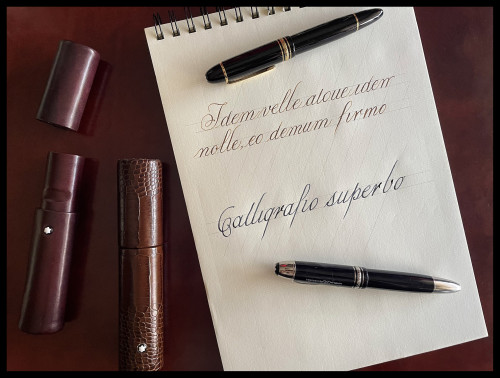 Idem velle atque idem
nolle, eo demum firmo
Calligrafio superbo